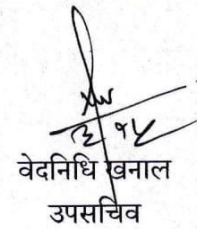 वेदनिधि खनाल
उपसचिव